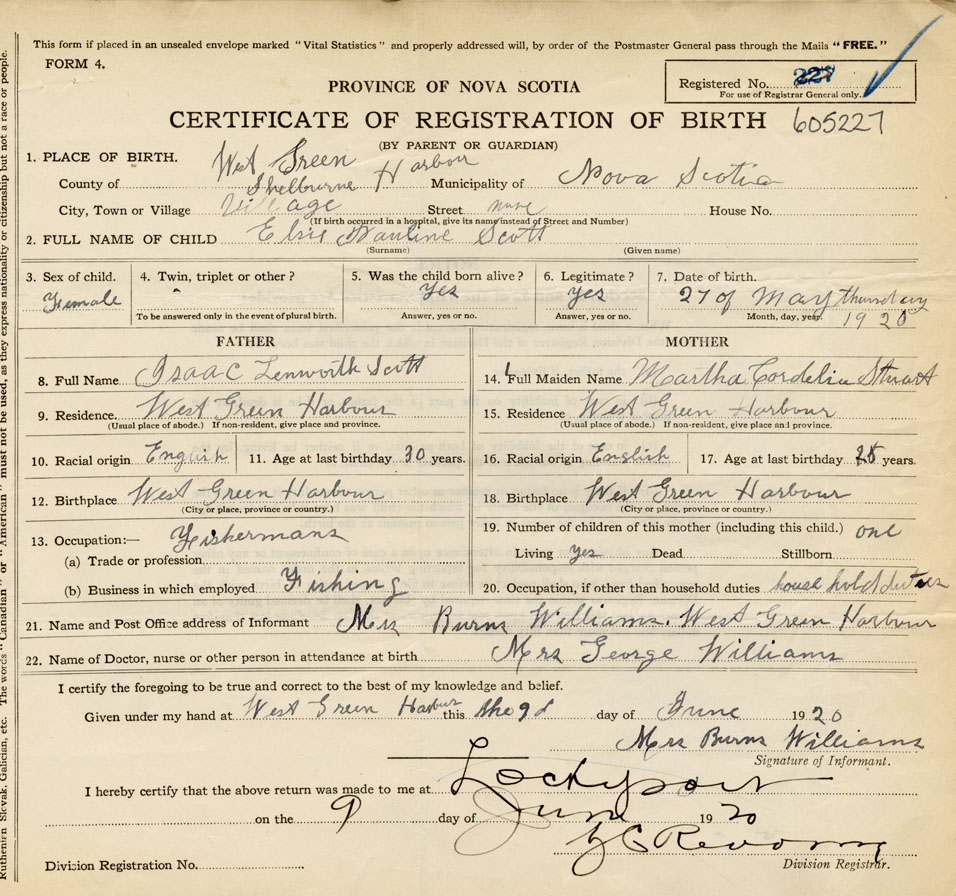 This form if placed in an unsealed envelope marked "Vital Statistics" and properly addressed will, by order of the Postmaster General pass through the Mails "FREE."
FORM 4.
PROVINCE OF NOVA SCOTIA
Registered No. 227
For use of Registrar General only.
CERTIFICATE OF REGISTRATION OF BIRTH 605227
(BY PARENT OR GUARDIAN)
1. PLACE OF BIRTH. West Green Harbour
County of Shelburne Municipality of Nova Scotia
City, Town or Village Village Street House No.
(If birth occurred in a hospital, give its name instead of Street and Number)
2. FULL NAME OF CHILD Elsie Pauline Scott
(Surname) (Given name)
3. Sex of child. 4. Twin, triplet or other? 5. Was the child born alive? 6. Legitimate? 7. Date of birth.
Female Yes Yes 27 of May thursday
To be answered only in the event of plural birth. Answer, yes or no. Answer, yes or no. Month, day, year. 1920
FATHER MOTHER
8. Full Name Isaac Lenworth Scott 14. Full Maiden Name Martha Cordelia Stuart
9. Residence. West Green Harbour 15. Residence West Green Harbour
(Usual place of abode.) If non-resident, give place and province. (Usual place of abode.) If non-resident, give place and province.
10. Racial origin English 11. Age at last birthday 30 years. 16. Racial origin English 17. Age at last birthday years.
12. Birthplace West Green Harbour 18. Birthplace West Green Harbour
(City or place, province or country.) (City or place, province or country.)
13. Occupation:— Fishermans 19. Number of children of this mother (including this child.) one
(a) Trade or profession Living yes Dead Stillborn
(b) Business in which employed Fishing 20. Occupation, if other than household duties house hold duties
21. Name and Post Office address of Informant Mrs Burns Williams. West Green Harbour
22. Name of Doctor, nurse or other person in attendance at birth Mrs George Williams
I certify the foregoing to be true and correct to the best of my knowledge and belief.
Given under my hand at West Green Harbur this the 9d day of June 1920
Mrs Burns Williams
Signature of Informant.
I hereby certify that the above return was made to me at Lockeport
on the 9 day of June 1920
Division Registration No. Division Registrar.
Ruthenian Slovak, Galician, etc. The words "Canadian" or "American" must not be used, as they express nationality or citizenship but not a race or people.